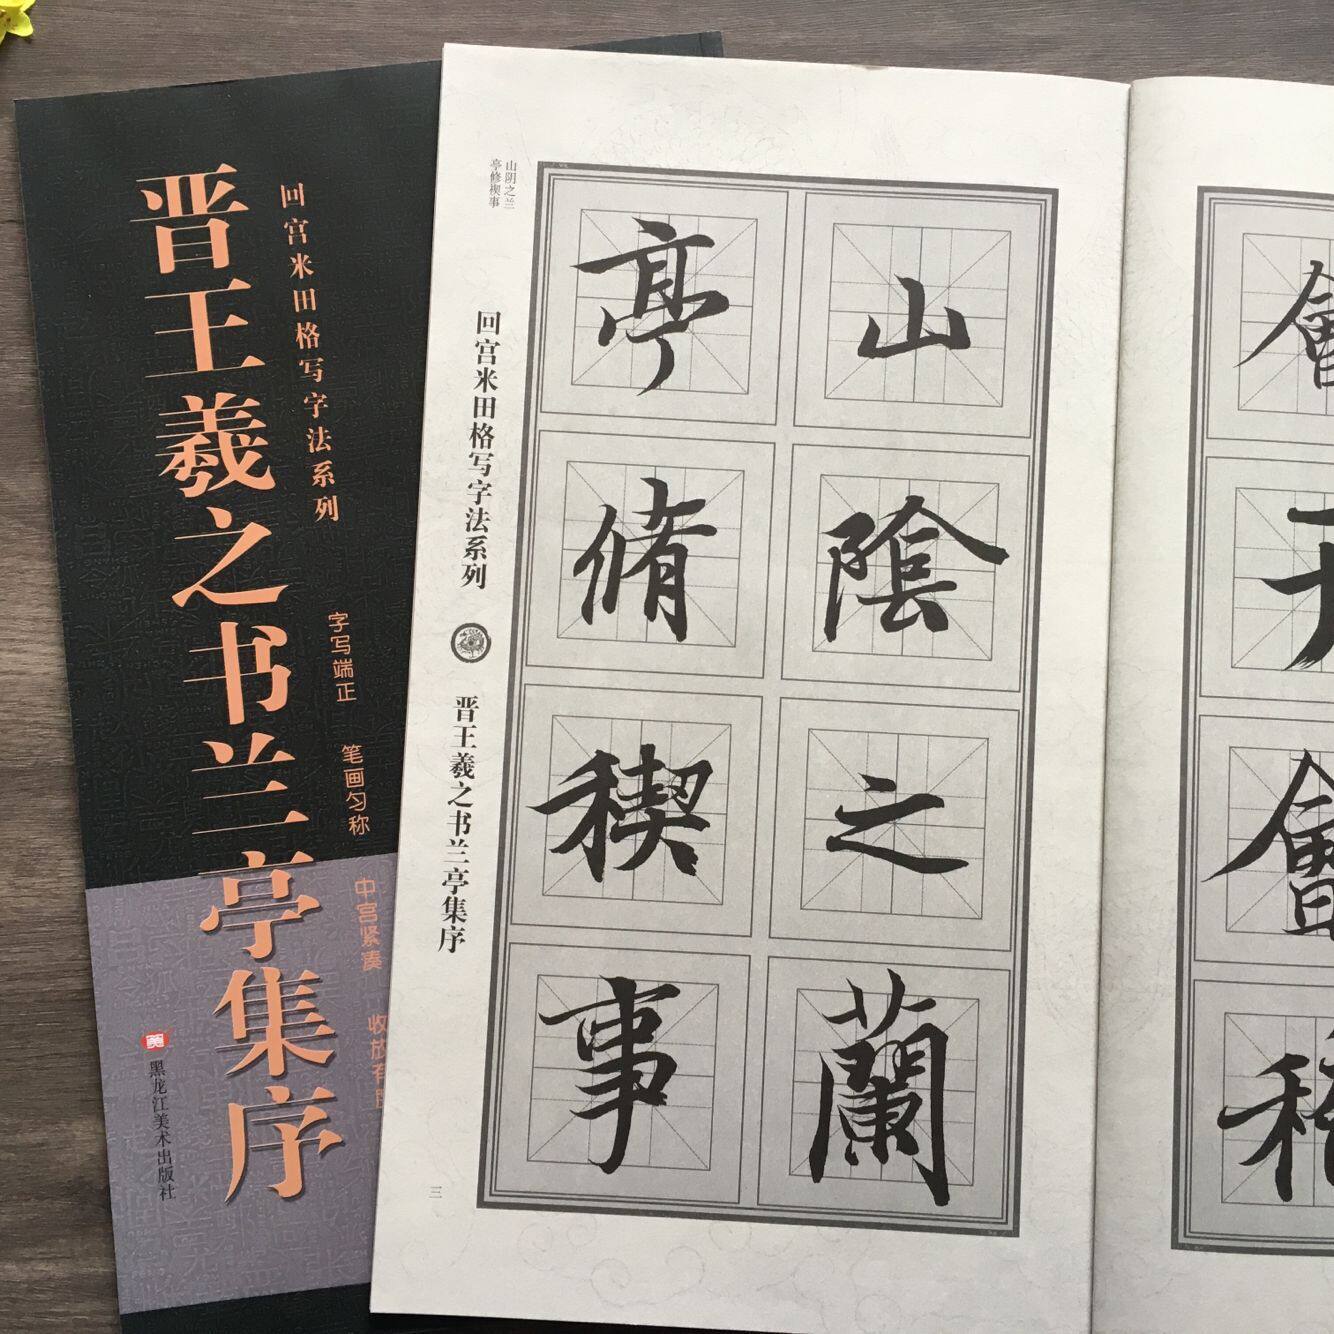 回宫米田格写字法系列
晋王羲之书兰亭集序
字写端正 笔画匀称 中宫紧凑 收放有
美
黑龙江美术出版社
山阴之兰
亭修禊事
回宫米田格写字法系列 晋王羲之书兰亭集序
山陰之蘭
亭脩稧事
三